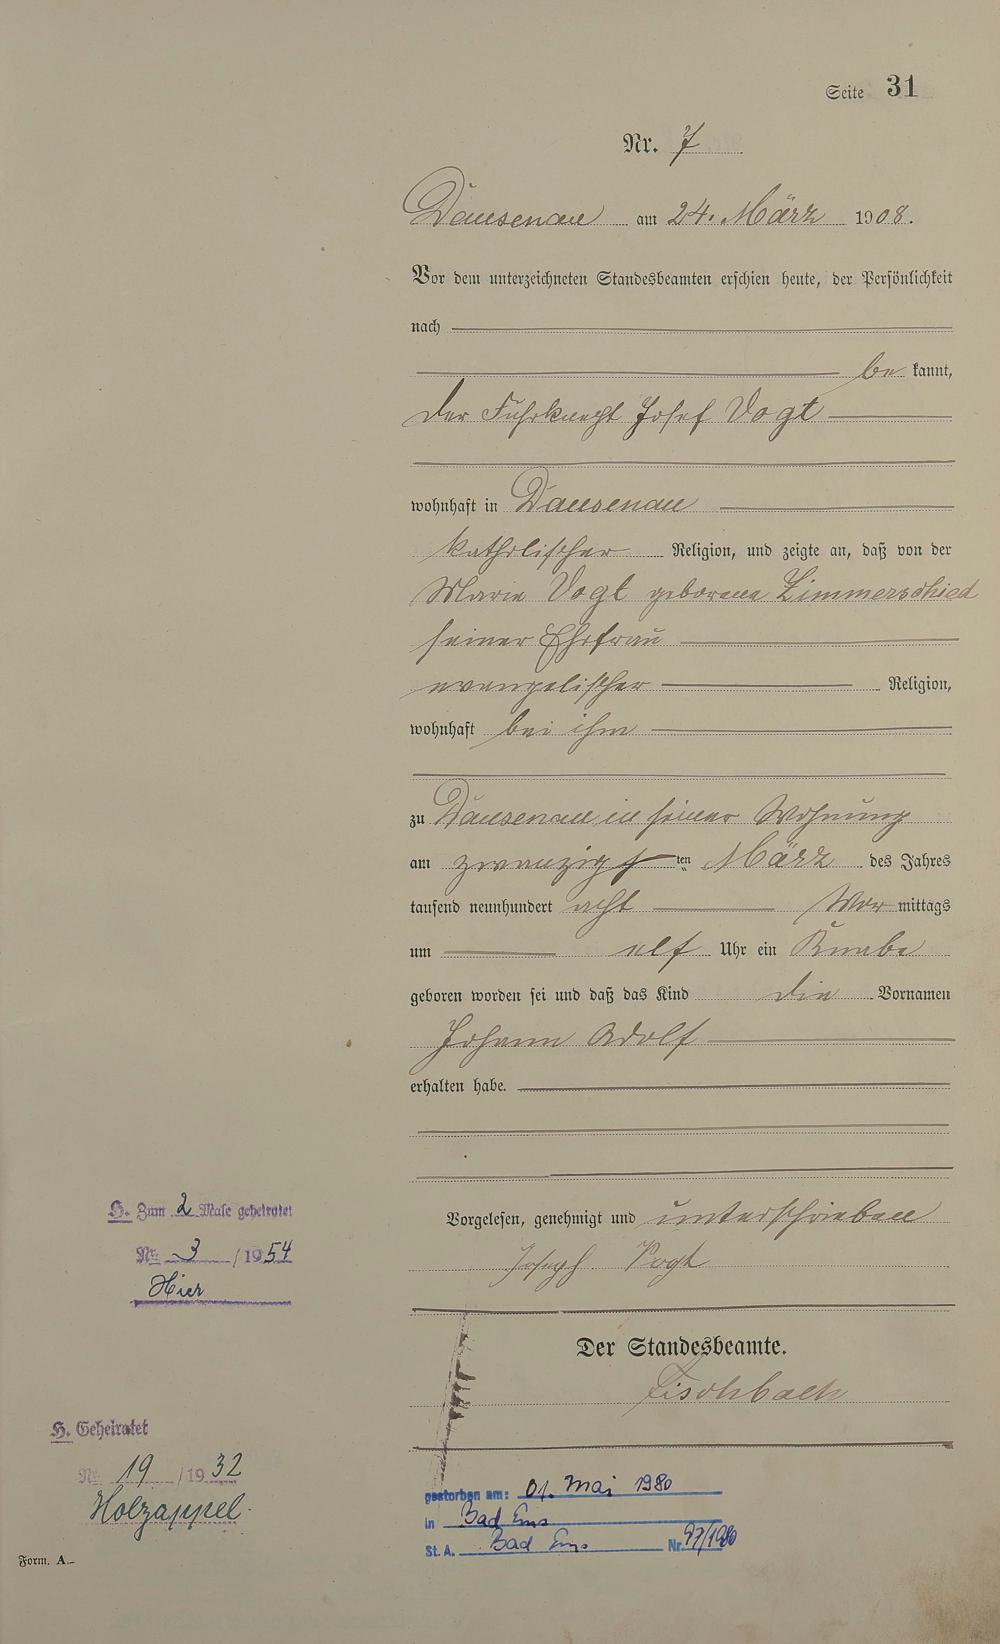 Seite 31
Nr. 7
Dausenau am 24. März 1908.
Vor dem unterzeichneten Standesbeamten erschien heute, der Persönlichkeit
nach
be kannt,
der Fuhrknecht Josef Vogt
wohnhaft in Dausenau
katholischer Religion, und zeigte an, daß von der
Marie Vogt geborene Zimmerschied
seiner Ehefrau
evangelischer Religion,
wohnhaft bei ihm
zu Dausenau in seiner Wohnung
am zwanzigsten März des Jahres
tausend neunhundert acht Vor mittags
um elf Uhr ein Knabe
geboren worden sei und daß das Kind die Vornamen
Johann Adolf
erhalten habe.
Vorgelesen, genehmigt und unterschrieben
Joseph Vogt
Der Standesbeamte.
Fischbach
H. Zum 2 Male geheiratet
Nr. 3 / 1954
Hier
H. Geheiratet
Nr. 19 / 1932
Holzappel.
gestorben am: 01. Mai 1980
in Bad Ems
St. A. Bad Ems Nr. 97/1980
Form. A.